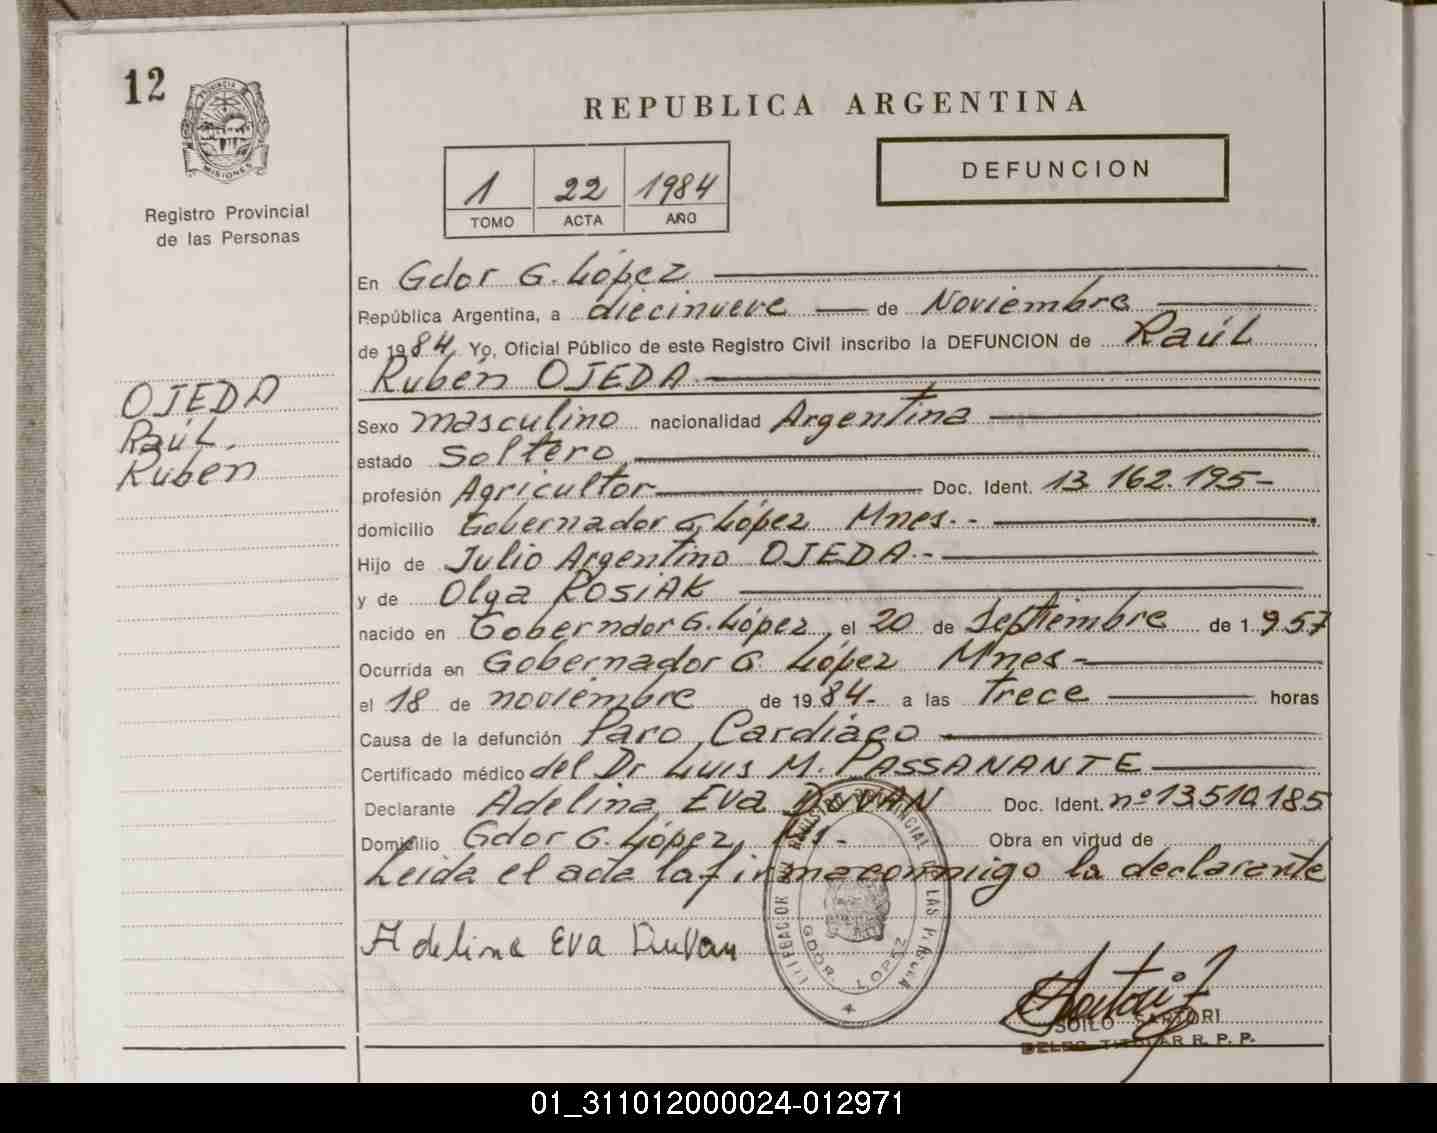 12
PROVINCIA DE
MISIONES
Registro Provincial
de las Personas
REPUBLICA ARGENTINA
1 22 1984
TOMO ACTA AÑO
DEFUNCION
En Gdor G. López
República Argentina, a diecinueve de Noviembre
de 1984. Yo, Oficial Público de este Registro Civil inscribo la DEFUNCION de Raúl
Rubén OJEDA
OJEDA
Raúl
Rubén
Sexo masculino nacionalidad Argentina
estado soltero
profesión Agricultor Doc. Ident. 13.162.195-
domicilio Gobernador G. López Mnes.-
Hijo de Julio Argentino OJEDA.-
y de Olga ROSIAK
nacido en Goberndor G. López, el 20 de Septiembre de 1.957
Ocurrida en Gobernador G. López Mnes-
el 18 de noviembre de 1984- a las Trece horas
Causa de la defunción Paro Cardiáco
Certificado médico del Dr Luis M. PASSANANTE
Declarante Adelina, Eva DUVAN Doc. Ident. nº 13.510.185
Domicilio Gdor G. López, -
Obra en virtud de
Leida el acta la firma conmigo la declarante
Adelina Eva Duvan
GDOR. LOPEZ
SOILO SARTORI
DELEG. TITULAR R. P. P.
01_311012000024-012971